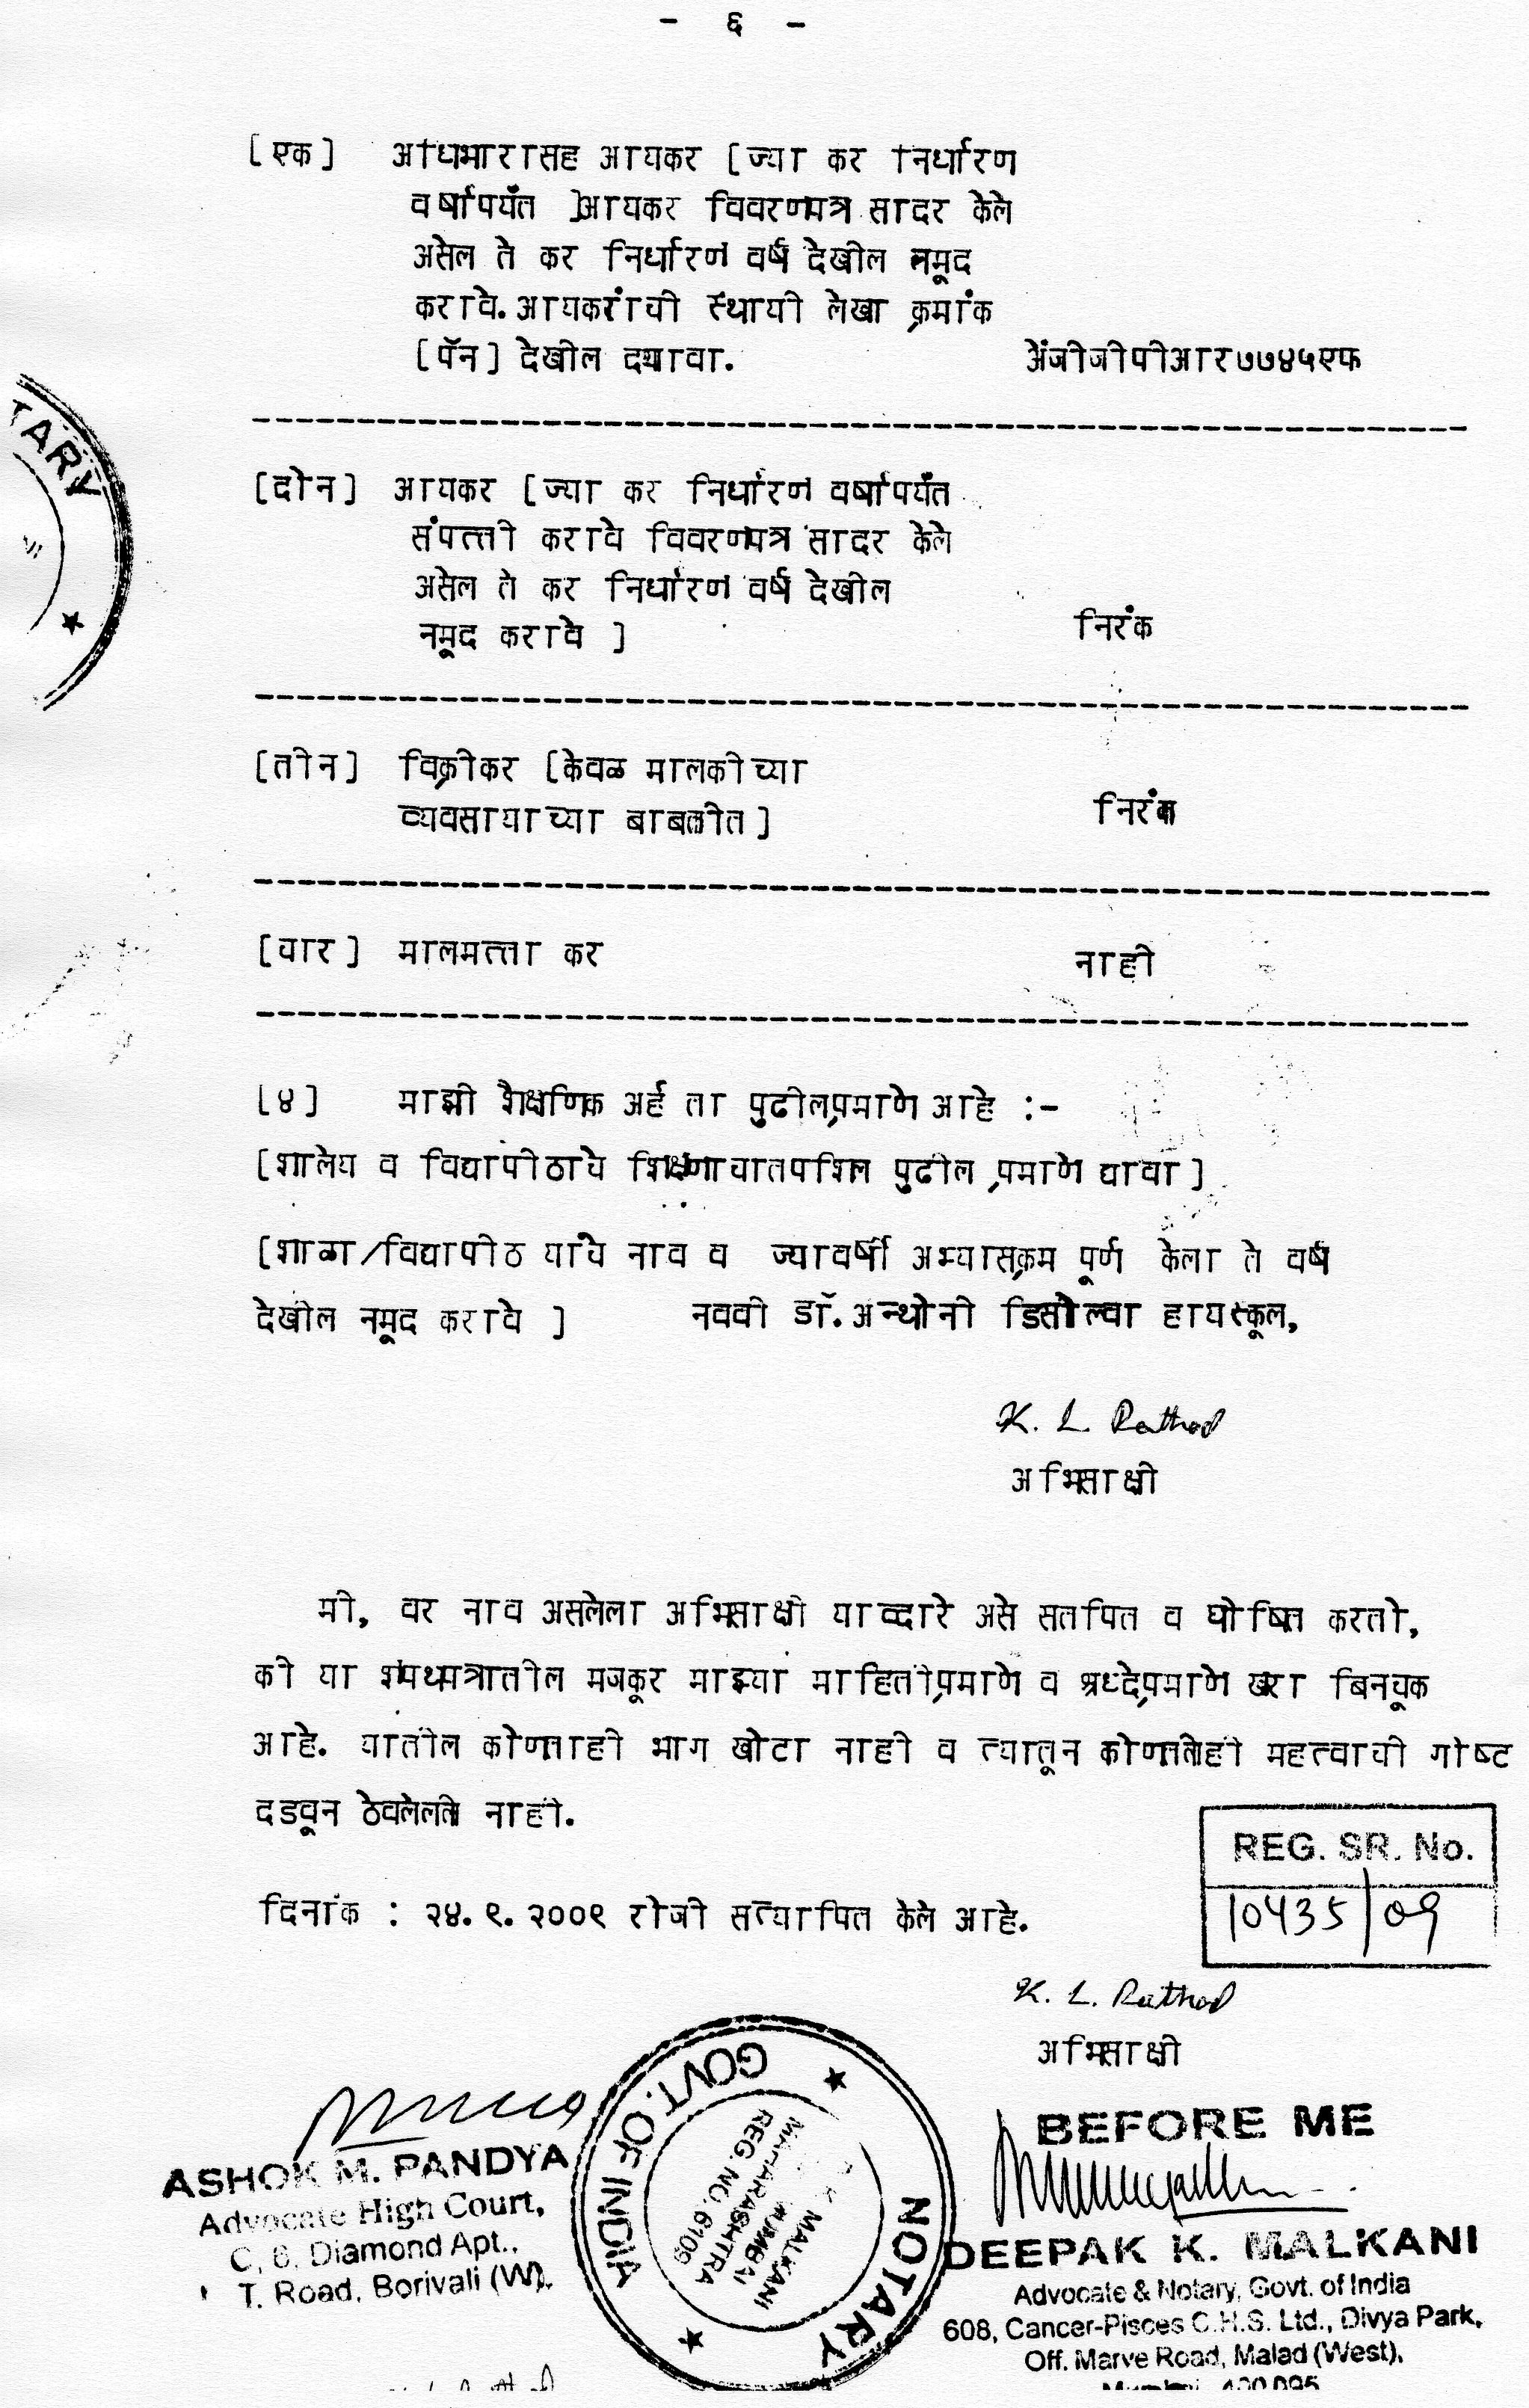 - ६ -
[एक] अधिभारासह आयकर [ज्या कर निर्धारण
वर्षापर्यंत ]आयकर विवरणपत्र सादर केले
असेल ते कर निर्धारण वर्ष देखील नमूद
करावे. आयकरांची स्थायी लेखा क्रमांक
[पॅन] देखील दयावा. अेंजीजीपीआर७७४५एफ
[दोन] आयकर [ज्या कर निर्धारण वर्षापर्यंत
संपत्ती करावे विवरणपत्र सादर केले
असेल ते कर निर्धारण वर्ष देखील
नमूद करावे ] निरंक
[तीन] विक्रीकर [केवळ मालकीच्या
व्यवसायाच्या बाबतीत] निरंक
[चार] मालमत्ता कर नाही
[४] माझी शैक्षणिक अर्हता पुढीलप्रमाणे आहे :-
[शालेय व विद्यापीठाचे शिक्षणाचातपशिल पुढील प्रमाणे द्यावा]
[शाळा/विद्यापीठ यांचे नाव व ज्यावर्षी अभ्यासक्रम पूर्ण केला ते वर्ष
देखील नमूद करावे ] नववी डॉ. अन्थोनी डिसोल्वा हायस्कूल,
K. L. Rathod
अभिसाक्षी
मी, वर नाव असलेला अभिसाक्षी याव्दारे असे सतपित व घोषित करतो,
की या शपथपत्रातील मजकूर माझ्या माहितीप्रमाणे व श्रध्देप्रमाणे खरा बिनचूक
आहे. यातील कोणताही भाग खोटा नाही व त्यातून कोणतीही महत्वाची गोष्ट
दडवून ठेवलेलती नाही.
REG. SR. No.
10435/09
दिनांक : २४. ९. २००९ रोजी सत्यापित केले आहे.
K. L. Rathod
अभिसाक्षी
BEFORE ME
ASHOK M. PANDYA
Advocate High Court,
C, 6, Diamond Apt.,
T. Road, Borivali (W).
GOVT. OF INDIA
NOTARY
K. MALKANI
MUMBAI
MAHARASHTRA
REG. NO. 6109
DEEPAK K. MALKANI
Advocate & Notary, Govt. of India
608, Cancer-Pisces C.H.S. Ltd., Divya Park,
Off. Marve Road, Malad (West),
Mumbai - 400 095
TARY